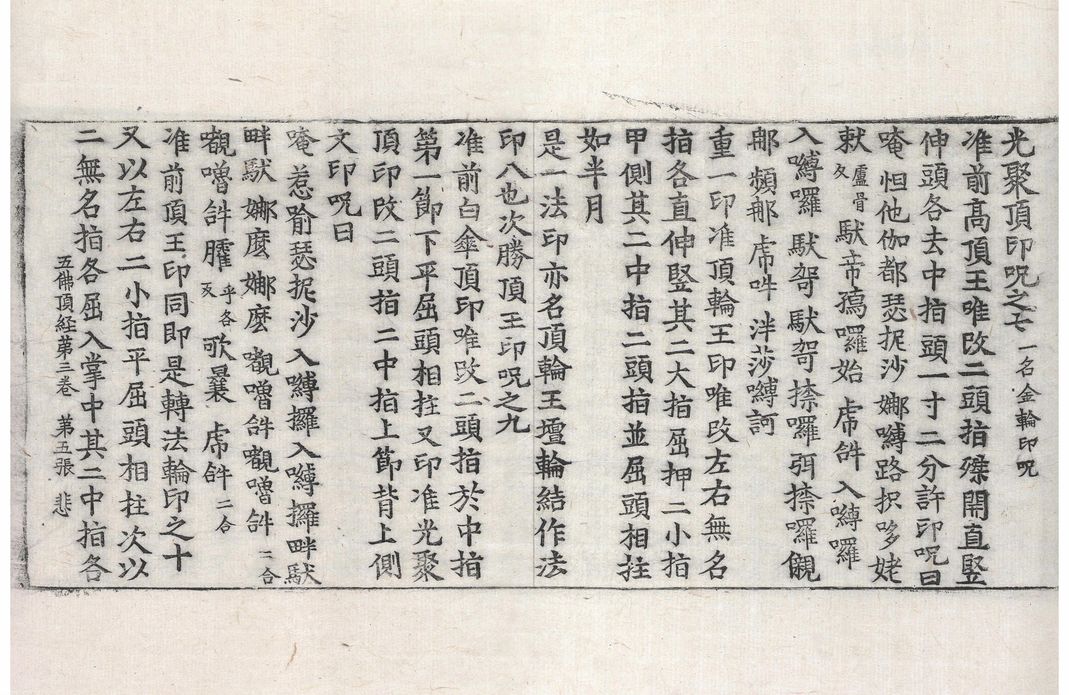 光聚頂印呪之七 一名金輪印呪
准前高頂王唯改二頭指磔開直竪
伸頭各去中指頭一寸二分許印呪曰
唵怛他伽都瑟抳沙娜嚩路抧哆姥
𠿒 盧骨反 馱帝殟囉始 虎𤙖 入嚩囉
入嚩囉 馱䂳馱䂳捺囉弭捺囉䚎
郍頻郍虎吽泮莎嚩訶
重一印准頂輪王印唯改左右無名
指各直伸竪其二大指屈押二小指
甲側其二中指二頭指並屈頭相拄
如半月
是一法印亦名頂輪王壇輪結作法
印八也次勝頂王印呪之九
准前白傘頂印唯改二頭指於中指
第一節下平屈頭相拄又印准光聚
頂印改二頭指二中指上節背上側
文印呪曰
唵惹喻瑟抳沙入嚩攞入嚩攞畔馱
畔馱娜麼娜麼 㘕嚕𤙖㘕嚕𤙖 三合
㘕嚕𤙖矐 乎各反 歌曩 虎𤙖 二合
准前頂王印同即是轉法輪印之十
又以左右二小指平屈頭相拄次以
二無名指各屈入掌中其二中指各
五佛頂経苐三卷 第五張 悲